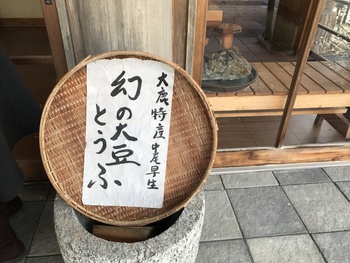 大鹿特産 中尾早生
幻の大豆
とうふ